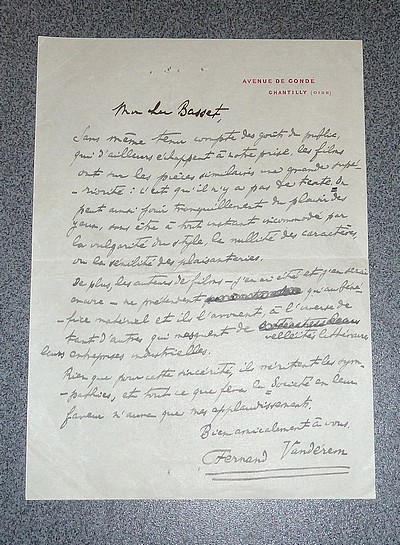 AVENUE DE CONDÉ
CHANTILLY (OISE)
Mon cher Basset,
Sans même tenir compte des goûts du public,
qui d'ailleurs échappent à notre prise, les films
ont sur les pièces similaires une grande supé-
-riorité : c'est qu'il n'y a pas de texte. On
peut ainsi jouir tranquillement du plaisir des
yeux, sans être à tout instant incommodé par
la vulgarité du style, la nullité des caractères,
ou la sénilité des plaisanteries.
De plus, les auteurs de films – j'en ai été et j'en serai
encore – ne prétendent qu'au béné-
-fice matériel et ils l'avouent, à l'inverse de
tant d'autres qui masquent de velléités littéraires
leurs entreprises industrielles.
Rien que pour cette sincérité, ils méritent les sym-
-pathies, et tout ce que fera la Société en leur
faveur n'aura que mes applaudissements.
Bien amicalement à vous.
Fernand Vandérem